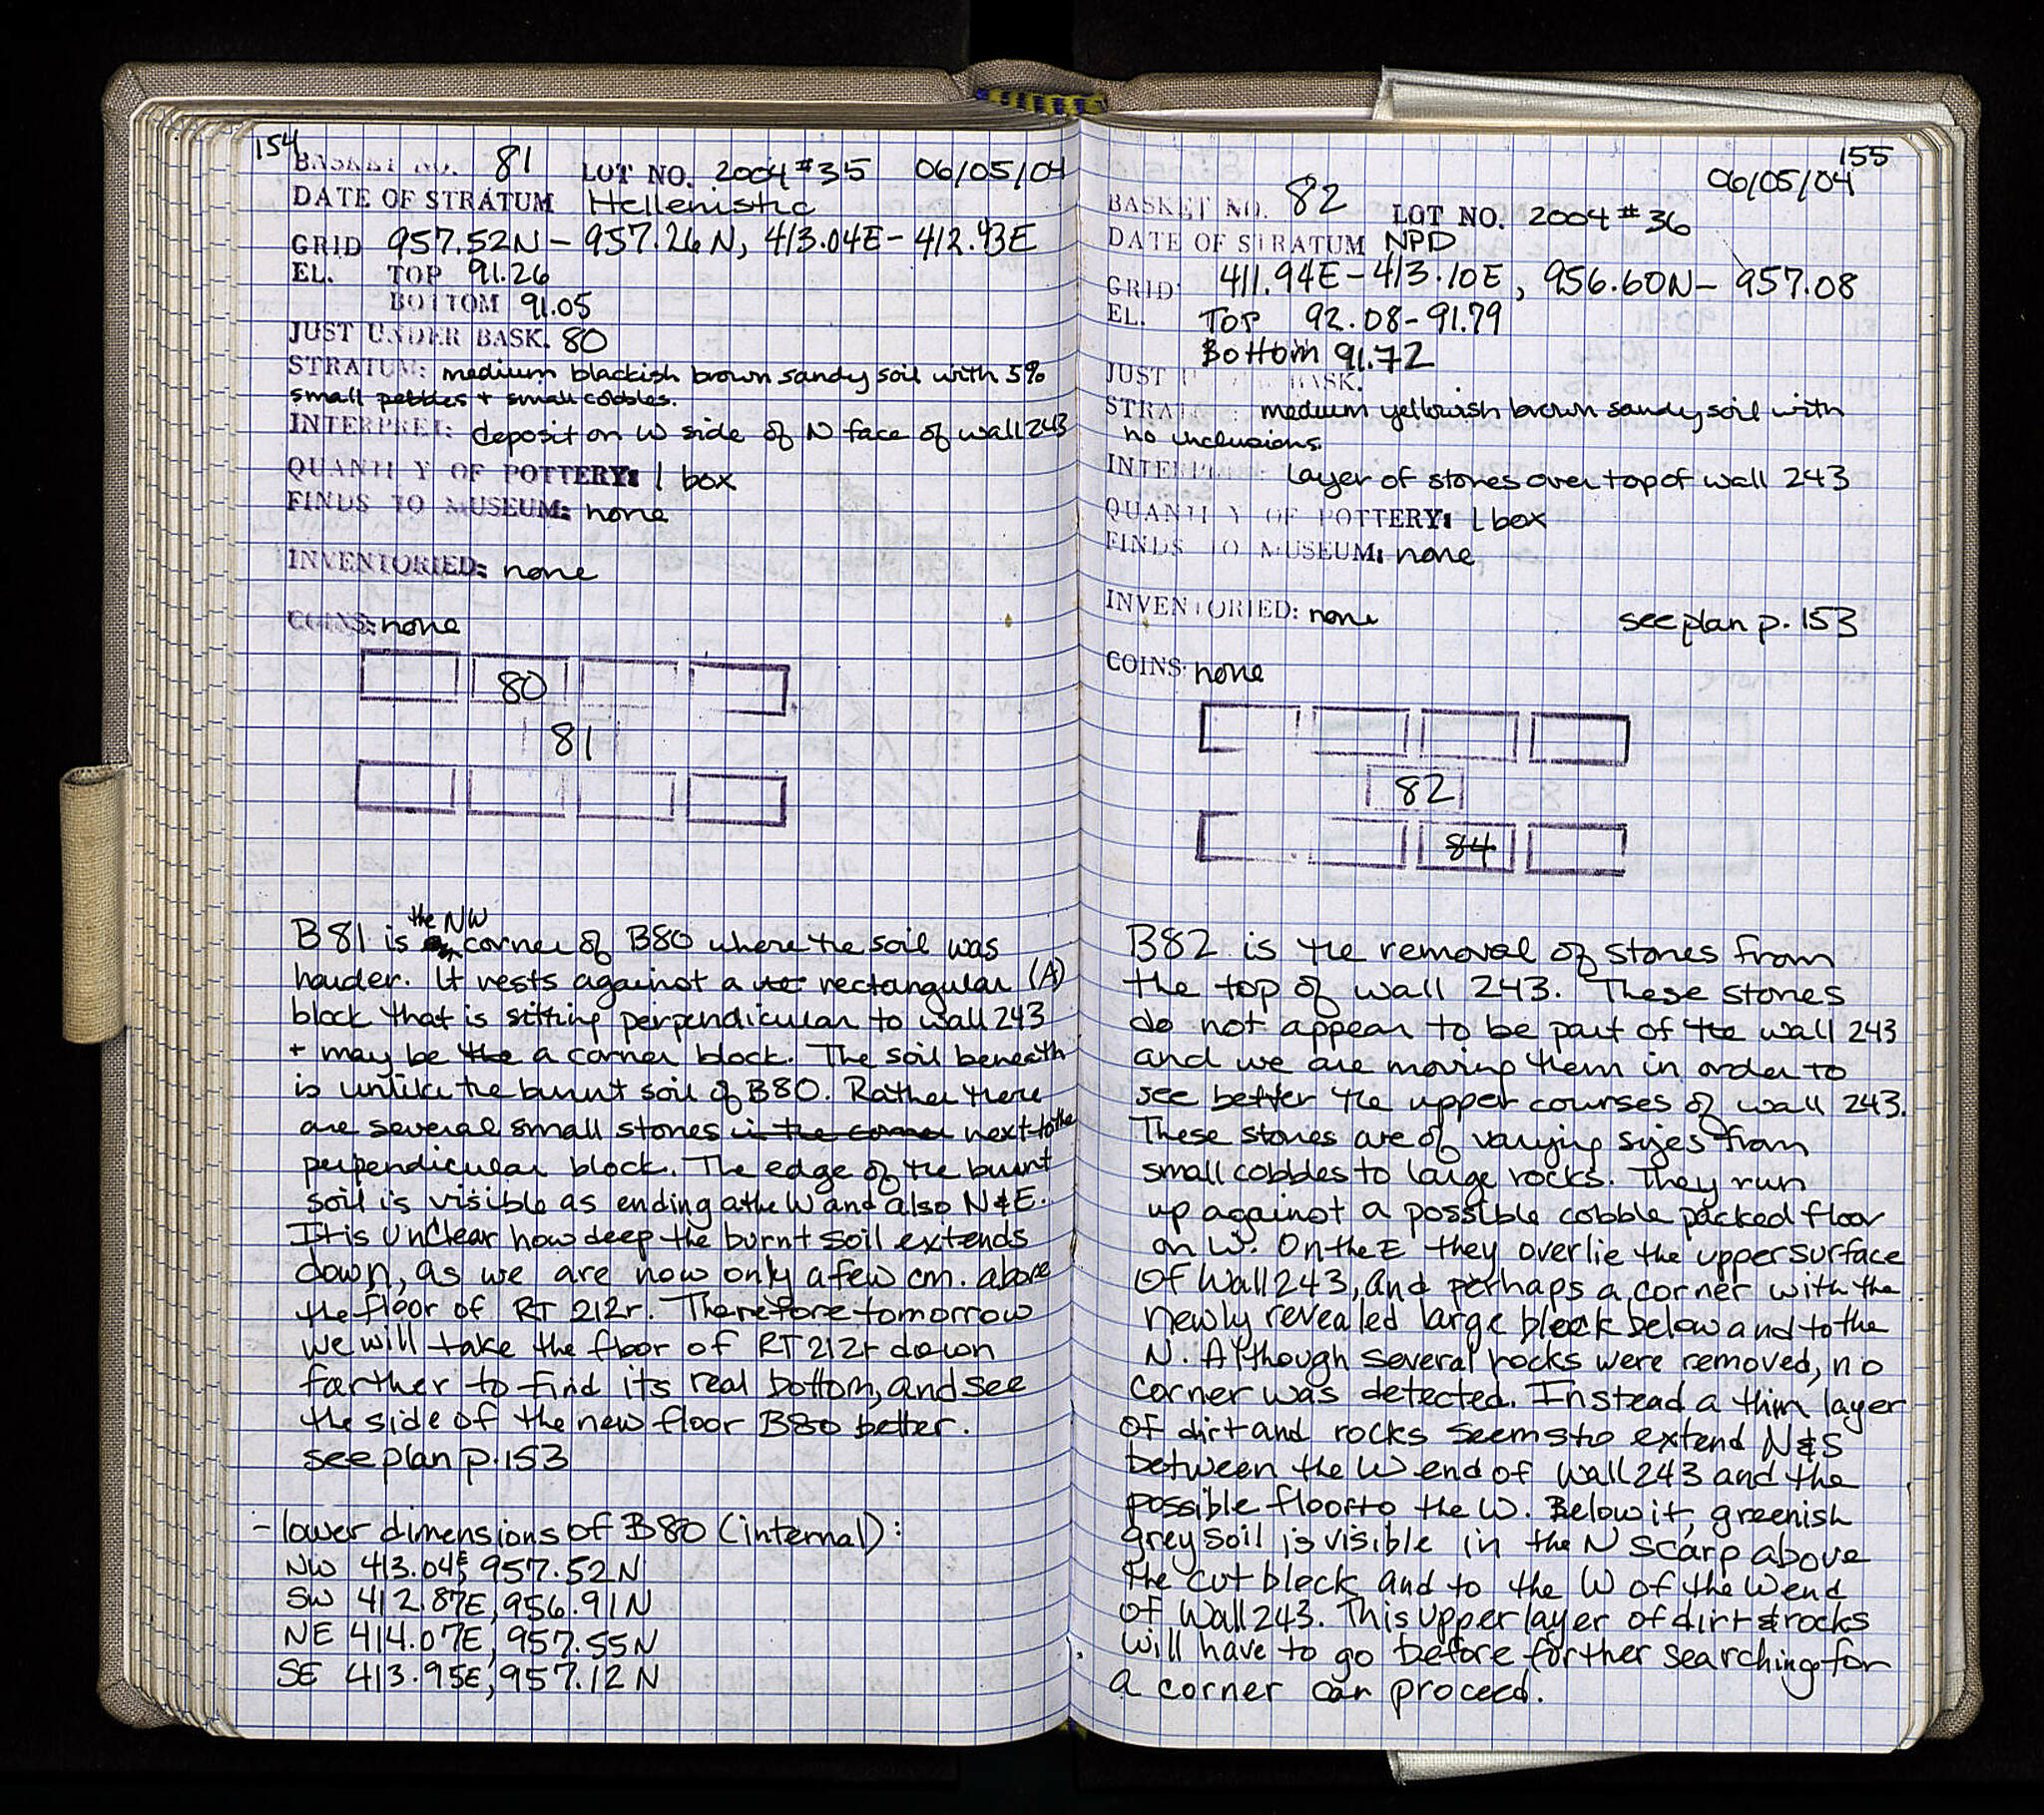 154
BASKET NO. 81 LOT NO. 2004 #35 06/05/04
DATE OF STRATUM Hellenistic
GRID 957.52N - 957.26N, 413.04E - 412.93E
EL. TOP 91.26
BOTTOM 91.05
JUST UNDER BASK. 80
STRATUM: medium blackish brown sandy soil with 5%
small pebbles + small cobbles.
INTERPRET: deposit on W side of N face of wall 243
QUANTITY OF POTTERY: 1 box
FINDS TO MUSEUM: none
INVENTORIED: none
COINS: none
80
81
B81 is the NW corner of B80 where the soil was
harder. It rests against a rectangular (A)
block that is sitting perpendicular to wall 243
+ may be the a corner block. The soil beneath
is unlike the burnt soil of B80. Rather there
are several small stones in the corner next to the
perpendicular block. The edge of the burnt
soil is visible as ending a the W and also N & E.
It is unclear how deep the burnt soil extends
down, as we are now only a few cm. above
the floor of RT 212r. Therefore tomorrow
we will take the floor of RT 212r down
farther to find its real bottom, and see
the side of the new floor B80 better.
see plan p. 153
- lower dimensions of B80 (internal):
NW 413.04E, 957.52N
SW 412.87E, 956.91N
NE 414.07E, 957.55N
SE 413.95E, 957.12N
155
06/05/04
BASKET NO. 82 LOT NO. 2004 #36
DATE OF STRATUM NPD
GRID: 411.94E - 413.10E, 956.60N - 957.08
EL. Top 92.08 - 91.79
Bottom 91.72
JUST UNDER BASK.
STRATUM: medium yellowish brown sandy soil with
no inclusions.
INTERPRET: layer of stones over top of wall 243
QUANTITY OF POTTERY: 1 box
FINDS TO MUSEUM: none
INVENTORIED: none see plan p. 153
COINS: none
82
84
B82 is the removal of stones from
the top of wall 243. These stones
do not appear to be part of the wall 243
and we are moving them in order to
see better the upper courses of wall 243.
These stones are of varying sizes from
small cobbles to large rocks. They run
up against a possible cobble packed floor
on W. On the E they overlie the upper surface
of Wall 243, and perhaps a corner with the
newly revealed large block below and to the
N. Although several rocks were removed, no
corner was detected. Instead a thin layer
of dirt and rocks seems to extend N & S
between the W end of Wall 243 and the
possible floor to the W. Below it, greenish
grey soil is visible in the N scarp above
the cut block and to the W of the W end
of Wall 243. This upper layer of dirt & rocks
will have to go before further searching for
a corner can proceed.